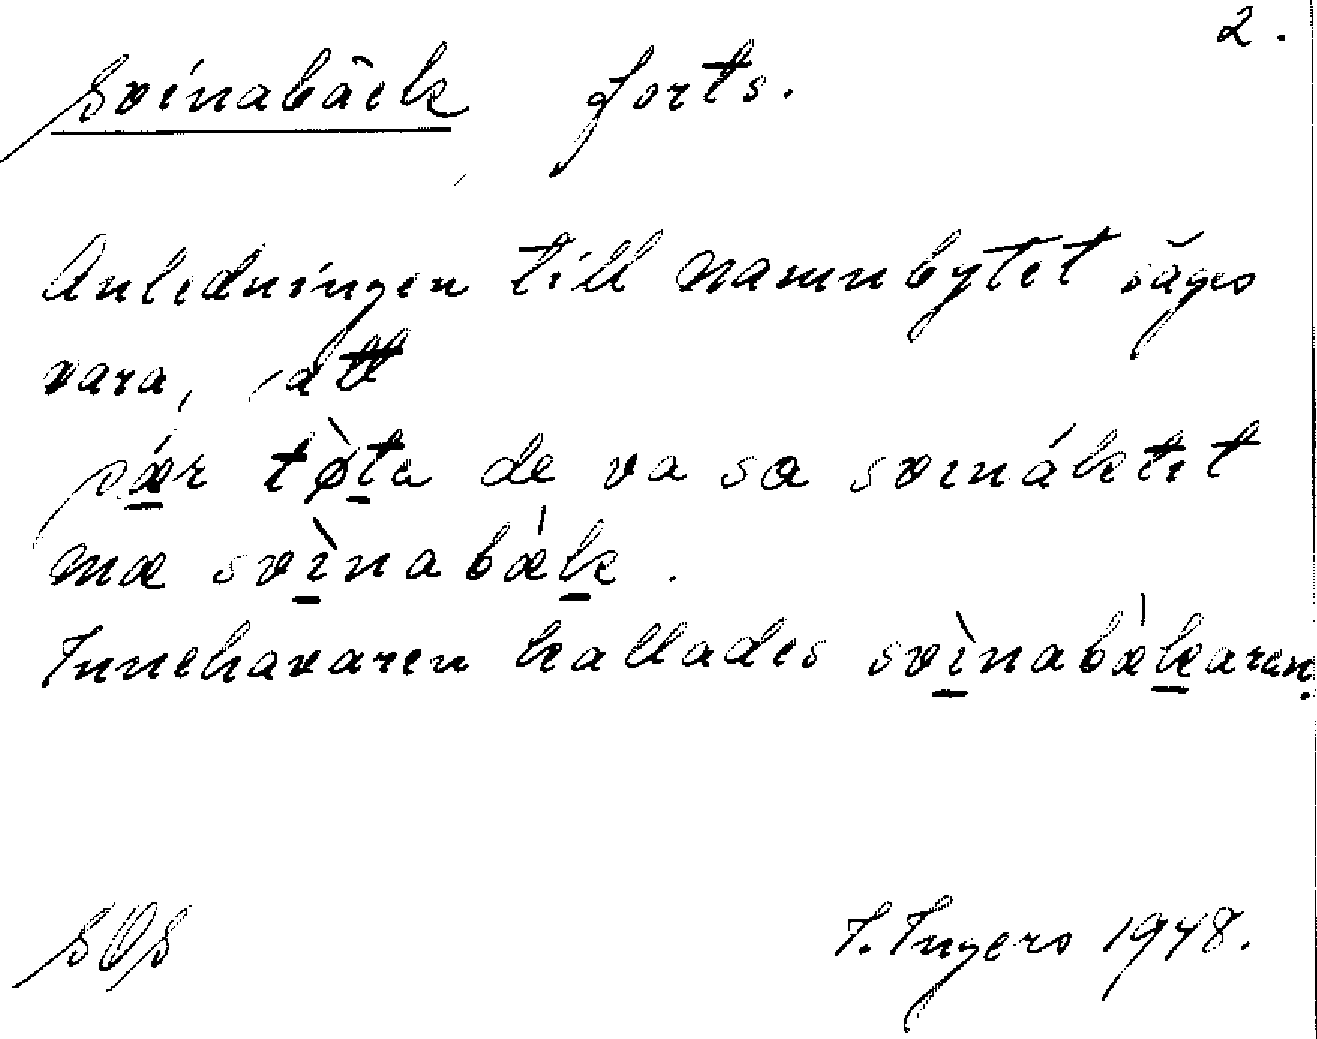 2.
Svinabäck forts.
Anledningen till namnbytet säges
vara, att
pær tøtn de va sa svináktit
mæ svìnabæk.
Innehavaren kallades svìnabækaren.
SOS
I. Ingers 1948.